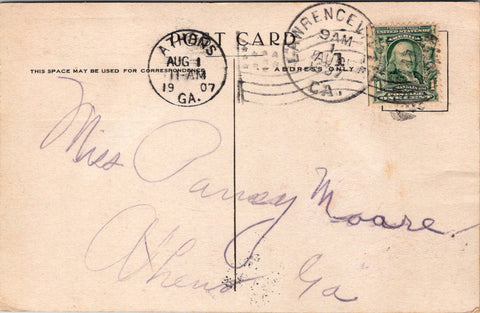 POST CARD
THIS SPACE MAY BE USED FOR CORRESPONDENCE
ADDRESS ONLY
ATHENS
AUG 1
11-AM
1907
GA.
LAWRENCEV
9AM
1
GA.
Miss Pansy Moore.
Athens
Ga